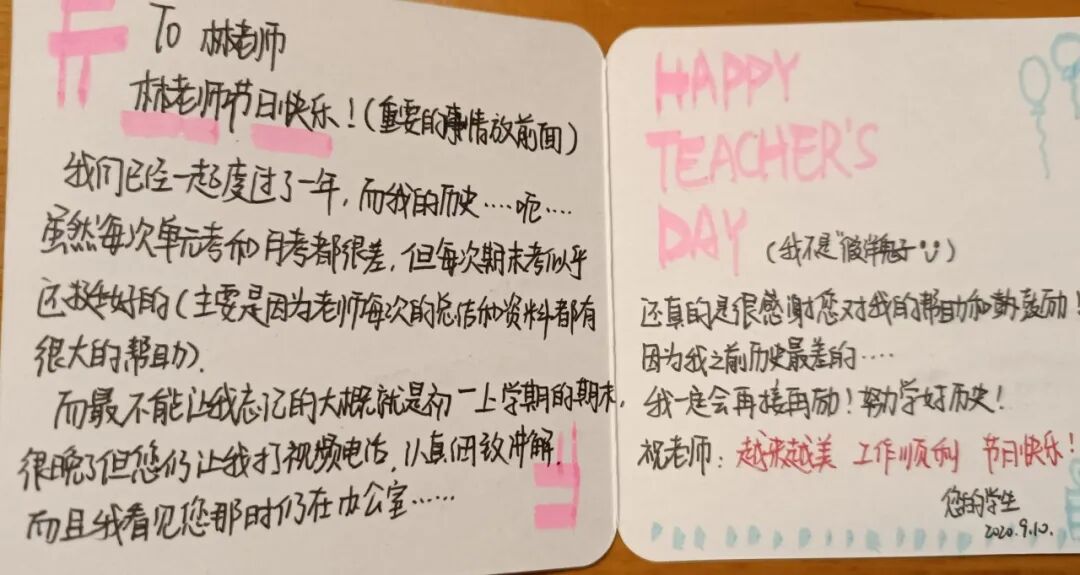 To 林老师
林老师节日快乐！(重要的事情放前面)
我们已经一起度过了一年，而我的历史……呃……
虽然每次单元考和月考都很差，但每次期末考似乎
还挺好的(主要是因为老师每次的总结和资料都有
很大的帮助)。
而最不能让我忘记的大概就是初一上学期的期末，
很晚了但您仍让我打视频电话，认真细致讲解，
而且我看见您那时仍在办公室……
HAPPY
TEACHER'S
DAY
(我不是"假洋鬼子")
还真的是很感谢您对我的帮助和鼓励！
因为我之前历史最差的……
我一定会再接再励！努力学好历史！
祝老师：越来越美 工作顺利 节日快乐！
您的学生
2020.9.10.